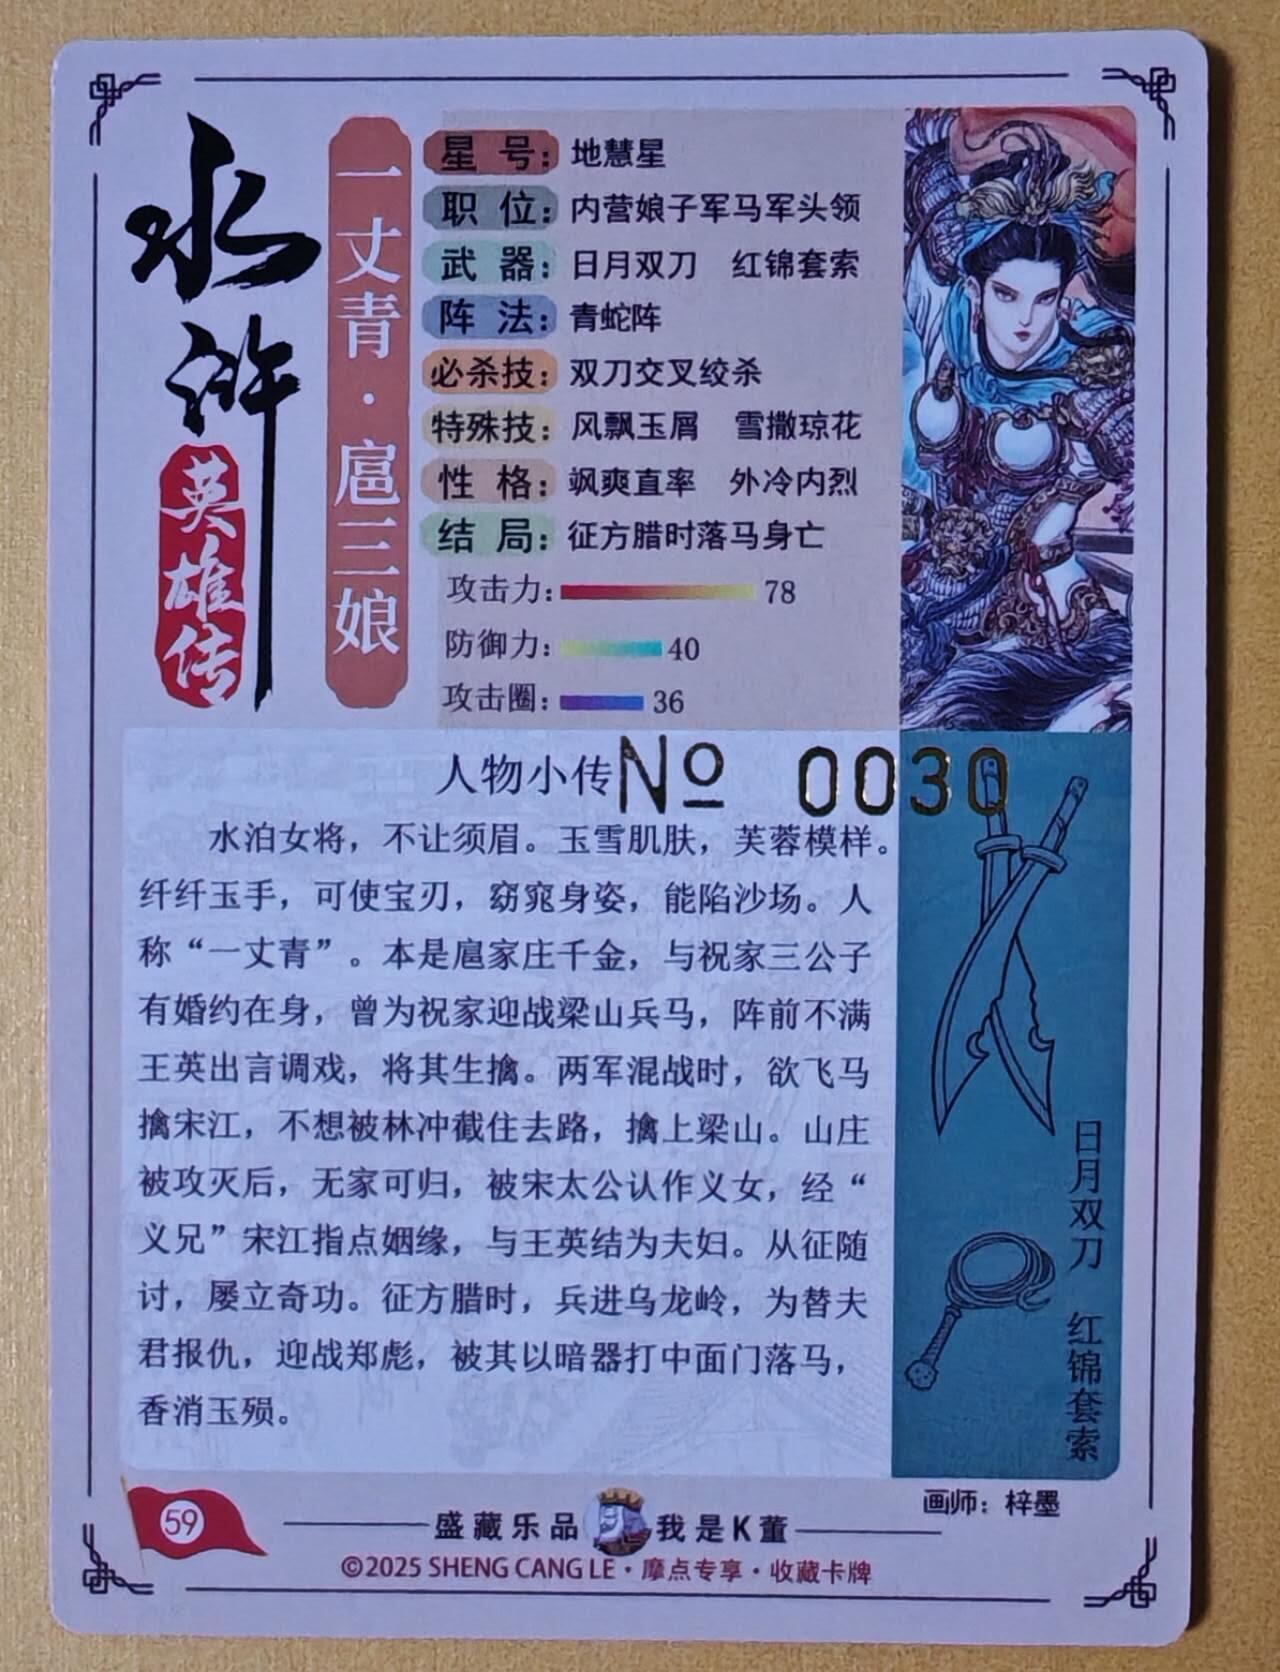 水浒
英雄传
一丈青·扈三娘
星号：地慧星
职位：内营娘子军马军头领
武器：日月双刀 红锦套索
阵法：青蛇阵
必杀技：双刀交叉绞杀
特殊技：风飘玉屑 雪撒琼花
性格：飒爽直率 外冷内烈
结局：征方腊时落马身亡
攻击力：78
防御力：40
攻击圈：36
人物小传
№ 0030
水泊女将，不让须眉。玉雪肌肤，芙蓉模样。
纤纤玉手，可使宝刃，窈窕身姿，能陷沙场。人
称“一丈青”。本是扈家庄千金，与祝家三公子
有婚约在身，曾为祝家迎战梁山兵马，阵前不满
王英出言调戏，将其生擒。两军混战时，欲飞马
擒宋江，不想被林冲截住去路，擒上梁山。山庄
被攻灭后，无家可归，被宋太公认作义女，经“
义兄”宋江指点姻缘，与王英结为夫妇。从征随
讨，屡立奇功。征方腊时，兵进乌龙岭，为替夫
君报仇，迎战郑彪，被其以暗器打中面门落马，
香消玉殒。
日月双刀
红锦套索
画师：梓墨
59
盛藏乐品 我是K董
©2025 SHENG CANG LE·摩点专享·收藏卡牌